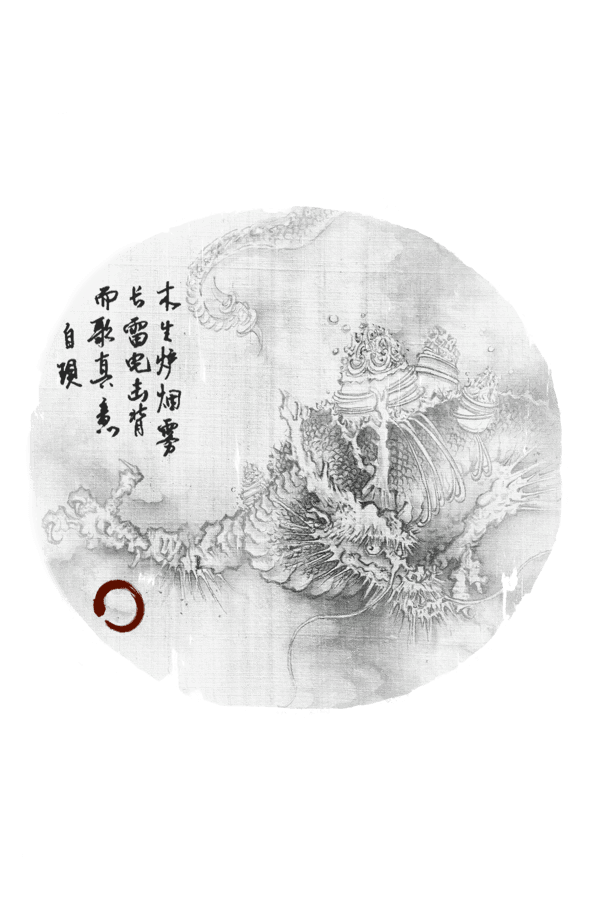 木生炉烟雾
长雷电击背
而歌真意
自琐